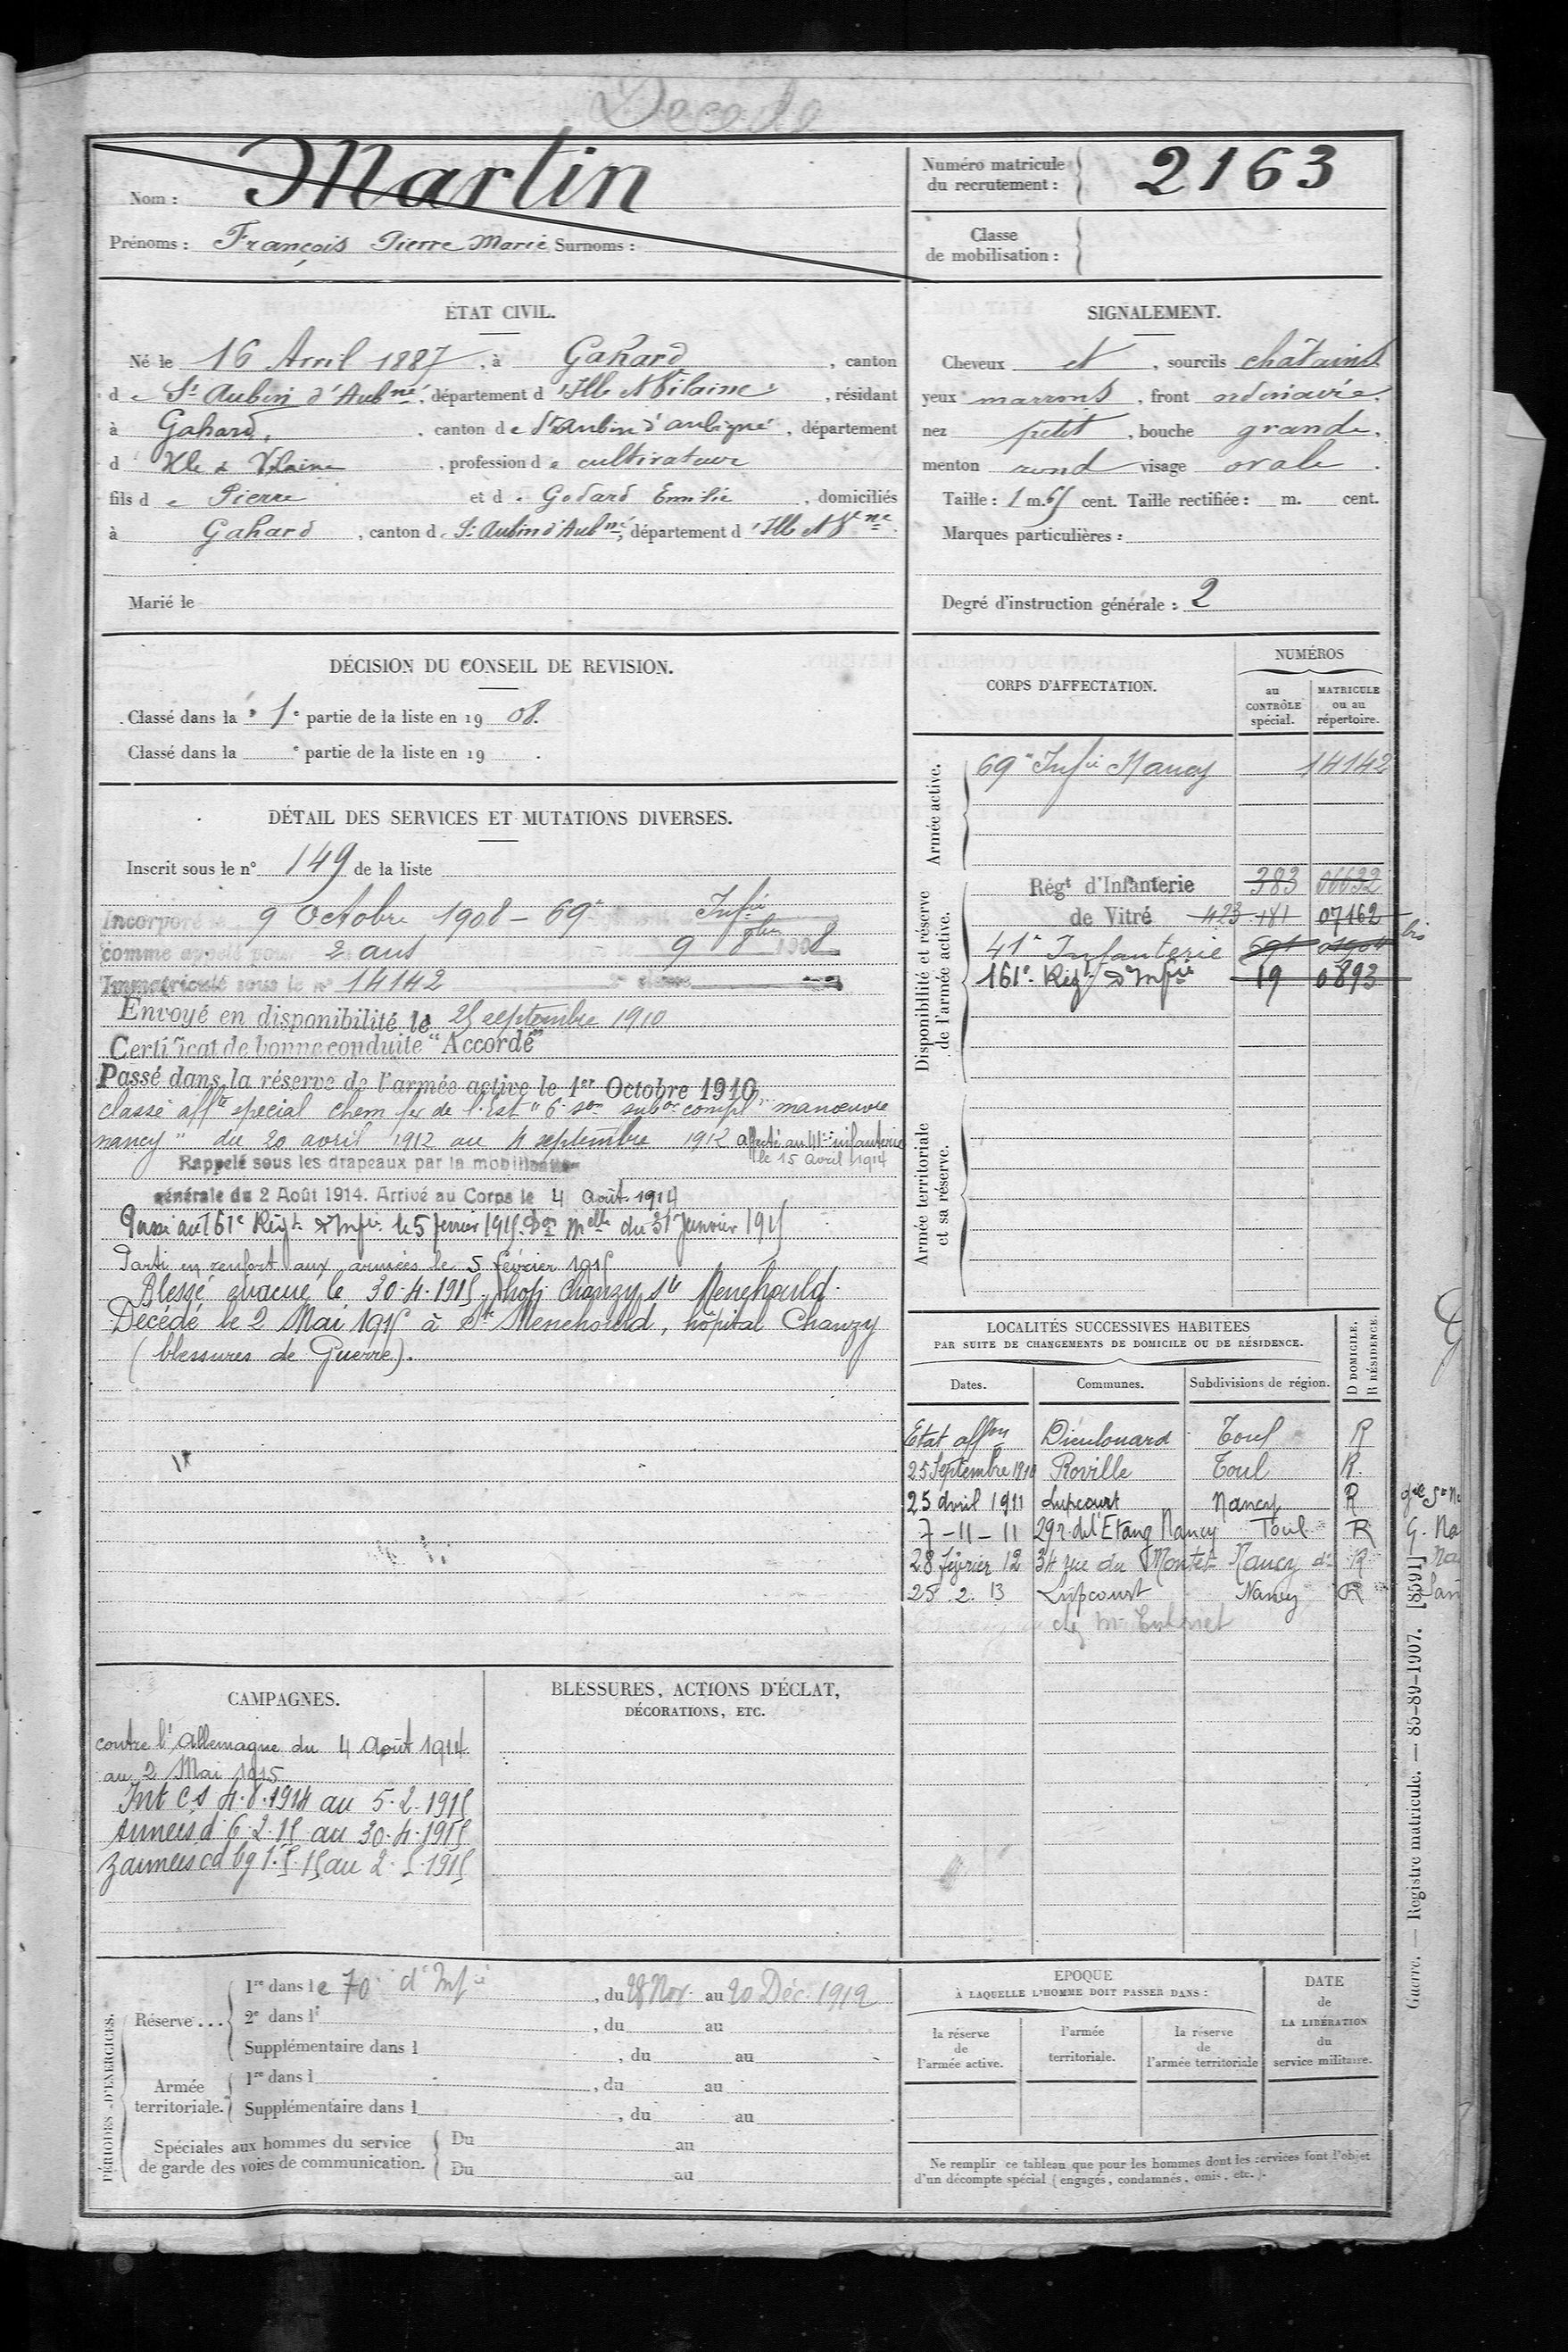 Décédé
Nom : Martin
Prénoms : François Pierre Marie Surnoms :
Numéro matricule du recrutement : 2163
Classe de mobilisation :
ÉTAT CIVIL.
Né le 16 Avril 1887, à Gahard, canton
de St Aubin d'Aubné, département d'Ille et Vilaine, résidant
à Gahard, canton de St Aubin d'aubigné, département
d'Ille & Vilaine, profession de cultivateur
fils de Pierre et de Godard Emilie, domiciliés
à Gahard, canton de St Aubin d'Aubné, département d'Ille et Vne.
Marié le
SIGNALEMENT.
Cheveux et, sourcils châtains
yeux marrons, front ordinaire,
nez petit, bouche grande,
menton rond visage ovale.
Taille : 1 m. 65 cent. Taille rectifiée : m. cent.
Marques particulières :
Degré d'instruction générale : 2
DÉCISION DU CONSEIL DE REVISION.
Classé dans la 1e partie de la liste en 1908.
Classé dans la e partie de la liste en 19 .
DÉTAIL DES SERVICES ET MUTATIONS DIVERSES.
Inscrit sous le n° 149 de la liste
Incorporé le 9 Octobre 1908 - 69e Infie
comme appelé pour 2 ans 9 8bre 1908
Immatriculé sous le n° 14142 2e classe
Envoyé en disponibilité le 25 septembre 1910
Certificat de bonne conduite "Accordé"
Passé dans la réserve de l'armée active le 1er Octobre 1910
classé affté spécial chem fer de l'Est "6e son subon compl manœuvre
nancy" du 20 avril 1912 au 4 septembre 1912 affecté au 41e infanterie
le 15 avril 1914
Rappelé sous les drapeaux par la mobilisation
générale du 2 Août 1914. Arrivé au Corps le 4 août 1914
Passé au 161e Régt d'Infie le 5 février 1915 Don mlle du 31 Janvier 1915
Parti en renfort aux armées le 5 février 1915
Blessé évacué le 30.4.1915, hop Chanzy Ste Menehould.
Décédé le 2 Mai 1915 à Ste Menehould, hôpital Chanzy
(blessures de Guerre).
CORPS D'AFFECTATION.
NUMÉROS
au CONTRÔLE spécial.
MATRICULE ou au répertoire.
Armée active.
69e Infie Nancy 14142
Disponibilité et réserve de l'armée active.
Régt d'Infanterie 383 06632
de Vitré 423 181 07162
41e Infanterie 691 01904 bis
161e Régt d'Infie 19 0893
Armée territoriale et sa réserve.
LOCALITÉS SUCCESSIVES HABITÉES
PAR SUITE DE CHANGEMENTS DE DOMICILE OU DE RÉSIDENCE.
D DOMICILE.
R RÉSIDENCE.
Dates. Communes. Subdivisions de région.
Etat affon Dieulouard Toul R
25 Septembre 1910 Roville Toul R.
25 avril 1911 Lupcourt Nancy R
7-11-11 29 r. de l'Etang Nancy Toul R
28 février 12 34 rue du Montet Nancy do R
25.2.13 Lupcourt Nancy R
CAMPAGNES.
contre l'Allemagne du 4 Août 1914
au 2 Mai 1915
Int CS 4.8.1914 au 5.2.1915
Armées d 6.2.15 au 30.4.1915
Z armées cd bg 1.5.15 au 2.5.1915
BLESSURES, ACTIONS D'ÉCLAT,
DÉCORATIONS, ETC.
PÉRIODES D'EXERCICES.
Réserve...
1re dans le 70e d'Infie, du 28 Nov. au 20 Déc. 1912
2e dans l , du au
Supplémentaire dans l , du au
Armée territoriale.
1re dans l , du au
Supplémentaire dans l , du au
Spéciales aux hommes du service
de garde des voies de communication.
Du au
Du au
EPOQUE
À LAQUELLE L'HOMME DOIT PASSER DANS :
la réserve de l'armée active.
l'armée territoriale.
la réserve de l'armée territoriale
DATE de LA LIBÉRATION du service militaire.
Ne remplir ce tableau que pour les hommes dont les services font l'objet
d'un décompte spécial (engagés, condamnés, omis, etc.).
Guerre. — Registre matricule. — 85-89-1907. [8591]